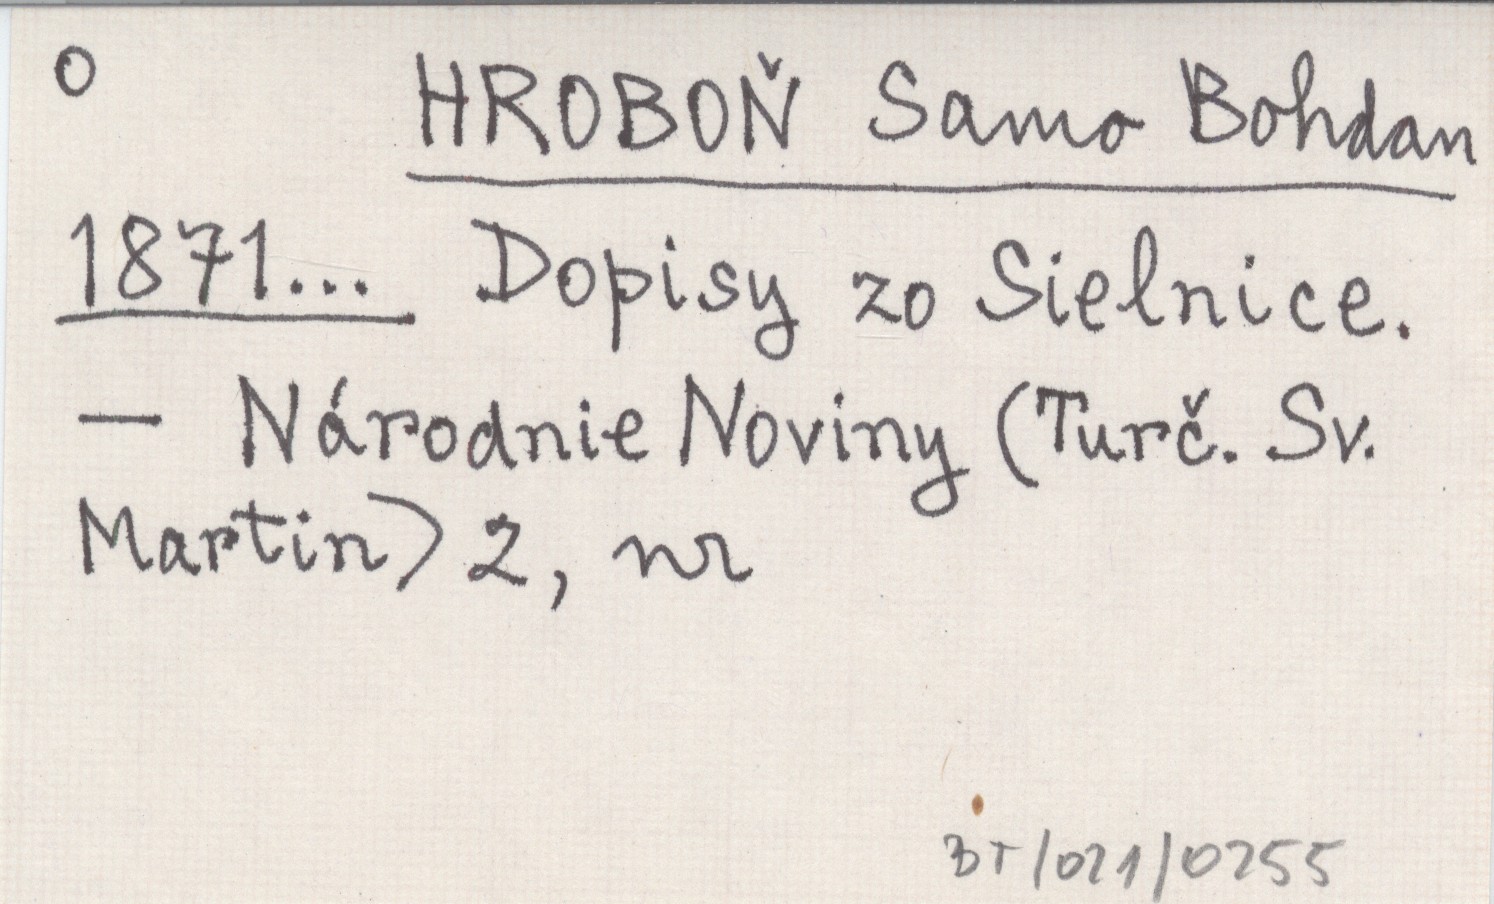 o HROBOŇ Samo Bohdan
1871... Dopisy zo Sielnice.
— Národnie Noviny (Turč. Sv.
Martin) 2, nr
BT/021/0255